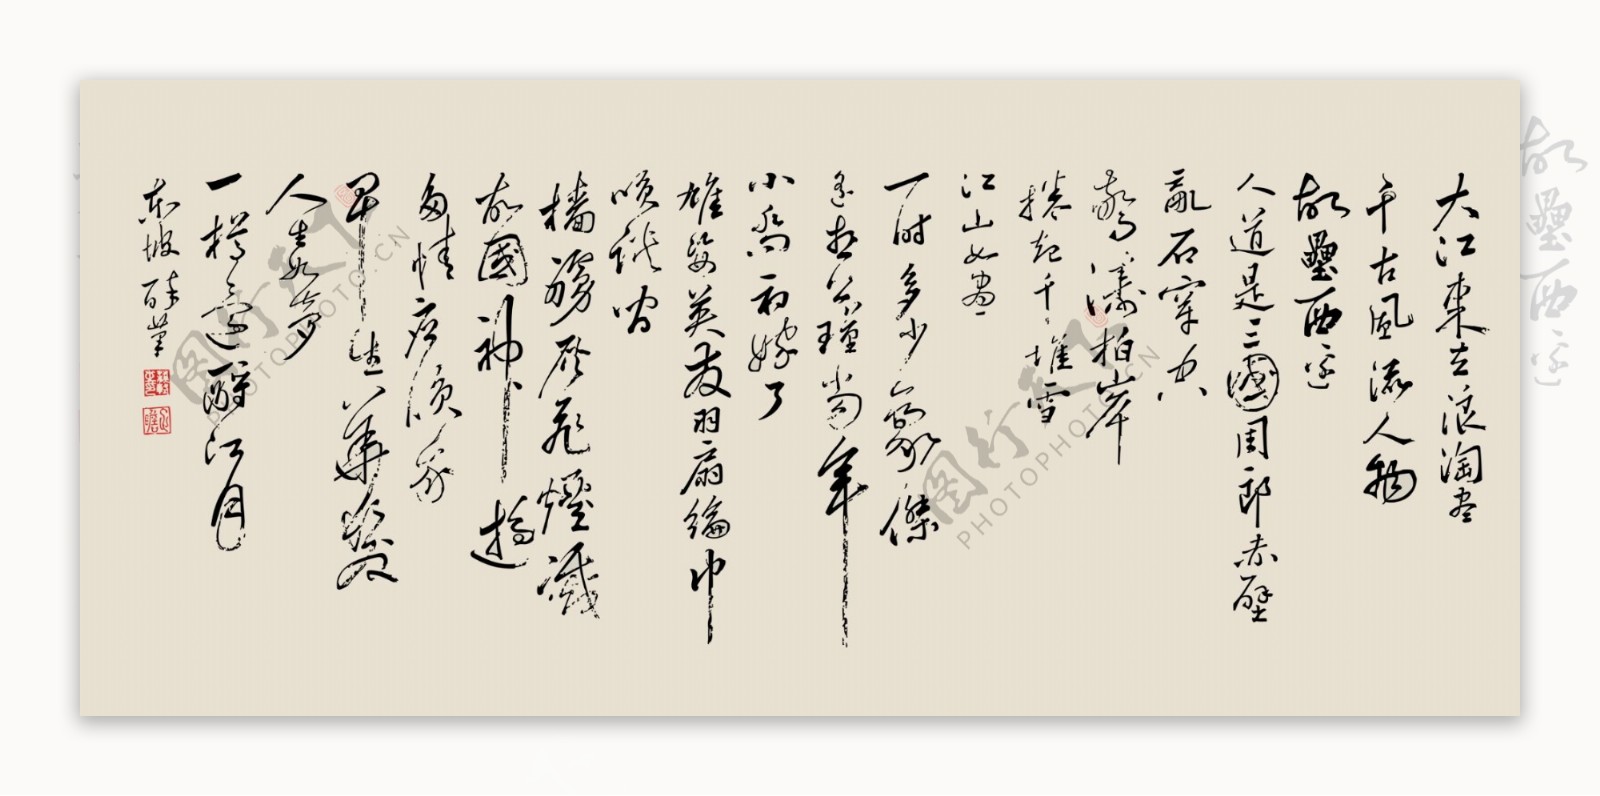 大江東去浪淘尽
千古風流人物
故壘西邊
人道是三國周郎赤壁
亂石穿空
驚濤拍岸
捲起千堆雪
江山如畫
一时多少豪傑
遙想公瑾當年
小喬初嫁了
雄姿英發羽扇綸巾
咲談間
檣艣灰飛煙滅
故國神遊
多情應咲我
早生華髮
人生如夢
一樽還酹江月
東坡醉筆
故壘西邊
图行天下
PHOTOPHOTO.CN
图行天下
PHOTOPHOTO.CN